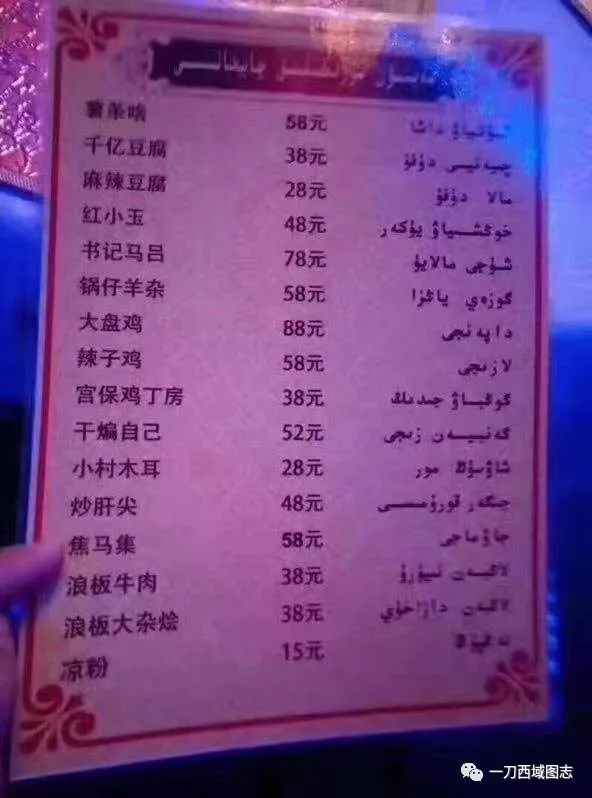 薯条啥 58元 شۇتىياۋ داشا
千亿豆腐 38元 چيەنيى دۇفۇ
麻辣豆腐 28元 مالا دۇفۇ
红小玉 48元 خوڭشياۋ يۇكەر
书记马吕 78元 شۇجى مالايۇ
锅仔羊杂 58元 گوزەي ياڭزا
大盘鸡 88元 داپەنجى
辣子鸡 58元 لازىجى
宫保鸡丁房 38元 گوڭباۋ جىدىڭ
干煸自己 52元 گەنبيەن زىجى
小村木耳 28元 شاۋسۇڭ مور
炒肝尖 48元 جىگەر قورۇمىسى
焦马集 58元 جاۋماجى
浪板牛肉 38元 لاڭبەن نيۇرۇ
浪板大杂烩 38元 لاڭبەن دازاخۇي
凉粉 15元 لەڭپۇڭ
一刀西域图志